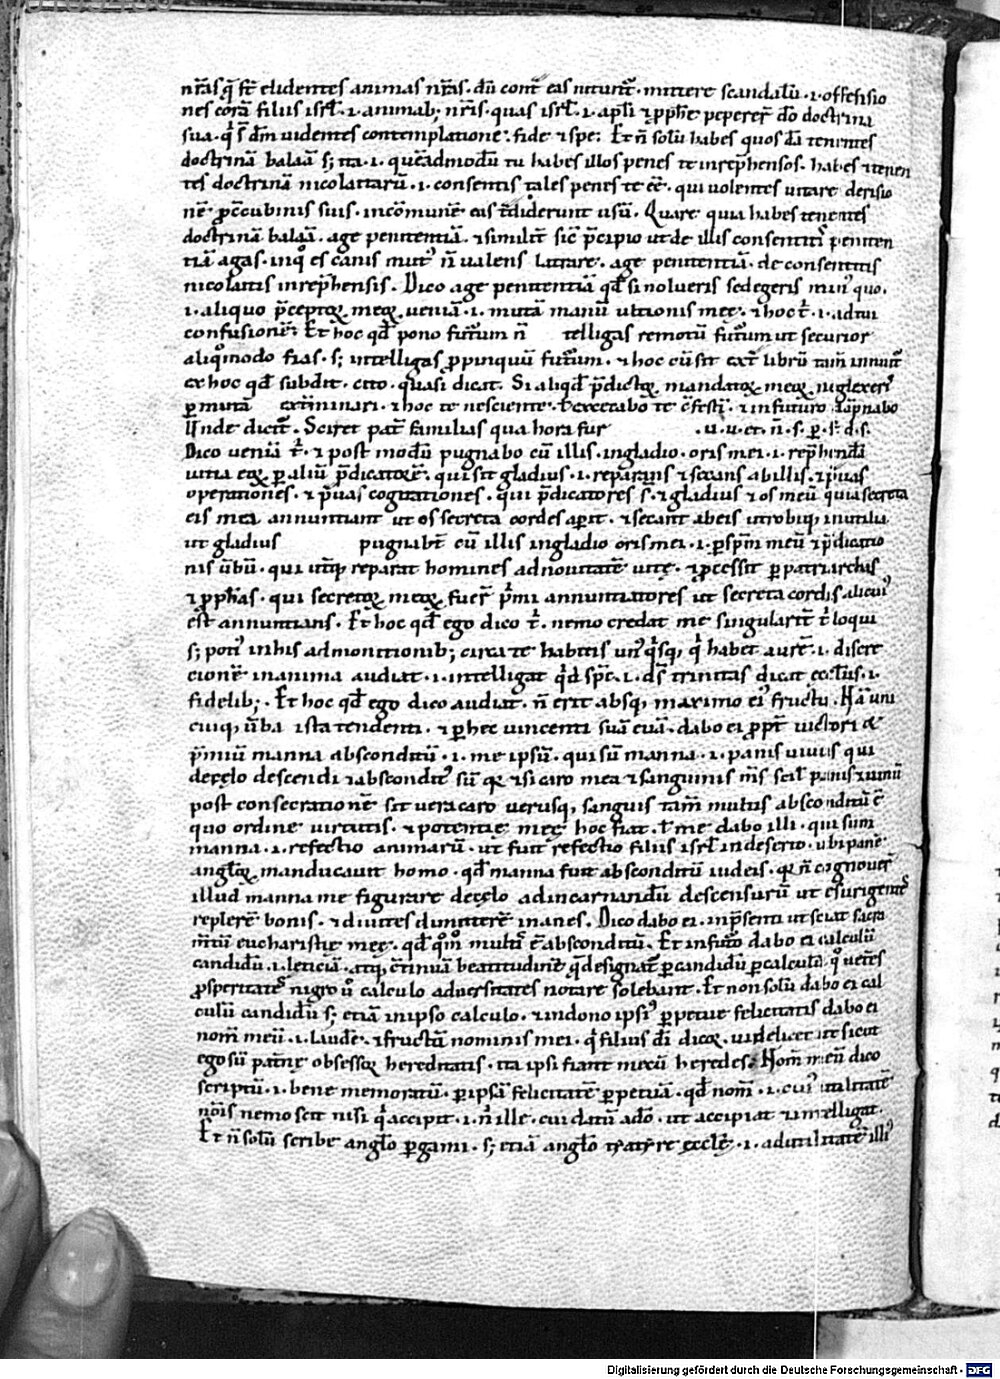 nr̄as q̄ st̄ elidentes animas nr̄as. dū cont̄ eas nitunt̄. mittere scandalū .i. offensio
nes corā filiis isrl̄ .i. animab; nr̄is. quas isrl̄ .i. apl̄i ⁊ pphe peperer̄ do doctrina
sua. q̓ s̄ dm̄ uidentes contemplatione. fide ⁊ spe. Et n̄ solū habes quosdā tenentes
doctrinā balaā s; ita .i. quēadmodū tu habes illos penes te inrep̄hensos. habes ⁊ tenen
tes doctrinā nicolaitarū .i. consentis tales penes te eē. qui uolentes uitare derisio
nē p̄ccubinis suis. incōmunē eas t̄diderunt usū. Quare quia habes tenentes
doctrinā balaā. age penitentiā. ⁊ similit̄ sic̄ p̄cipio ut de illis consentitis peniten
tiā agas. inq̊ es canis mut᾽ n̄ ualens latrare. age penitentiā. de consentitis
nicolaitis inrep̄hensis. Dico age penitentiā qd̄ si nolueris sed egeris min᾽ quo.
.i. aliquo p̄ceptoꝝ meoꝝ ueniā .i. mutā manū ultionis meę. ⁊ hoc t̓ .i. ad tui
confusionē. Et hoc qd̄ pono futurum n̄ telligas remotū futurum ut securior
aliq̊modo fias. s; intelligas ꝓpinquū futurum. ⁊ hoc cū sit ext̄ librū tam̄ innuit̄
ex hoc qd̄ subdit. cito. quasi dicat. Si aliqd̄ p̄dictoꝝ mandatoꝝ meoꝝ neglexer᾽
ꝑmutā exterminari. ⁊ hoc te nesciente. ⁊ in futuro
Unde dicit̄. Sciret pat̄ familias qua hora fur .u.u.et.n̄.s.ꝑ.f.d.s.
Dico ueniā t̓. ⁊ post modū pugnabo cū illis. in gladio. oris mei .i. rep̄hendā
uitia eoꝝ ꝑ aliū p̄dicatorē. qui sit gladius .i. reparans ⁊ secans ab illis. ⁊ p̄uas
operationes. ⁊ p̄uas cogitationes. qui p̄dicatores s̄. ⁊ gladius ⁊ os meū quia secreta
eis mea annuntiant ut os secreta cordis aperit. ⁊ secant ab eis utrobiq; inutilia
ut gladius pugnabt̄ cū illis in gladio oris mei .i. ꝑ spm̄ meū ⁊ p̄dicatio
nis ūbū. qui utiq; reparat homines ad nouitatē uitę. ⁊ p̄cessit ꝑ patriarchas
⁊ ꝓph̄as. qui secretoꝝ meoꝝ fuer̄ p̓mi annuntiatores ut secreta cordis alicui᾽
est annuntians. Et hoc qd̄ ego dico t̓. nemo credat me singularit̄ t̓ loqui
s; poti᾽ in his admonitionib; circa te habitis un᾽ q̓sq; q̓ habet aurē .i. discre
cionē in anima audiat .i. intelligat q̓d spc̄ .i. ds̄ trinitas dicat eccl̄iis .i.
fidelib;. Et hoc qd̄ ego dico audiat. n̄ erit absq; maximo ei᾽ fructu. Nā uni
cuiq; ūba ista tendenti. ⁊ ꝑ hec uincenti suā euā. dabo ei ꝓpt̄ uictoriā
p̄miū manna absconditū .i. me ipsū. qui sū manna .i. panis uiuus qui
de cęlo descendi ⁊ abscondit᾽ sū qꝛ ⁊ si caro mea ⁊ sanguinis mis̄ scil̄ panis ⁊ uinū
post consecrationē sit uera caro uerusq; sanguis tam̄ multis absconditū ē
quo ordine uirtutis. ⁊ potentię meę hoc fiat. ł me dabo illi. qui sum
manna .i. refectio animarū. ut fuit refectio filiis isrl̄ in deserto. ubi panē
angl̄oꝝ manducauit homo. qd̄ manna fuit absconditū iudeis. qꝛ n̄ cognouer̄
illud manna me figurare de cęlo ad incarnandū descensurū ut esurientes
replerē bonis. ⁊ diuites dimitterē inanes. Dico dabo ei. in p̄senti ut sciat sacra
mt̄ū eucharistie meę. qd̄ q̊m̊ multis ē absconditū. Et in futuro dabo ei calculū
candidū .i. leticiā. atq; c̄tinuā beatitudinē q̄ designat̄ ꝑ candidū ꝑ calculū q̊ uet̄es
ꝓsperitates nigro ū calculo aduersitates notare solebant. Et non solū dabo ei cal
culū candidū s; etiā in ipso calculo. ⁊ in dono ipsi᾽ ꝑpetue felicitatis dabo ei
nom̄ meū .i. laudē. ⁊ fructū nominis mei. q̓ filius dī dicoꝛ. uidelicet ut sicut
ego sū patnę obsessoꝛ hereditatis. ita ipsi fiant mecū heredes. Nom̄ meū dico
scriptū .i. bene memoratū. ꝑ ipsā felicitatē ꝑpetuā. qd̄ nom̄ .i. cui᾽ utilitatē
nōis nemo scit nisi q̓ accipit .i. n̓ ille. cui datū a dō. ut accipiat ⁊ intelligat.
Et n̄ solū scribe angl̄o ꝑgami. s; etiā angl̄o tyatire eccl̄ę .i. ad utilitatē illi᾽
Digitalisierung gefördert durch die Deutsche Forschungsgemeinschaft - DFG